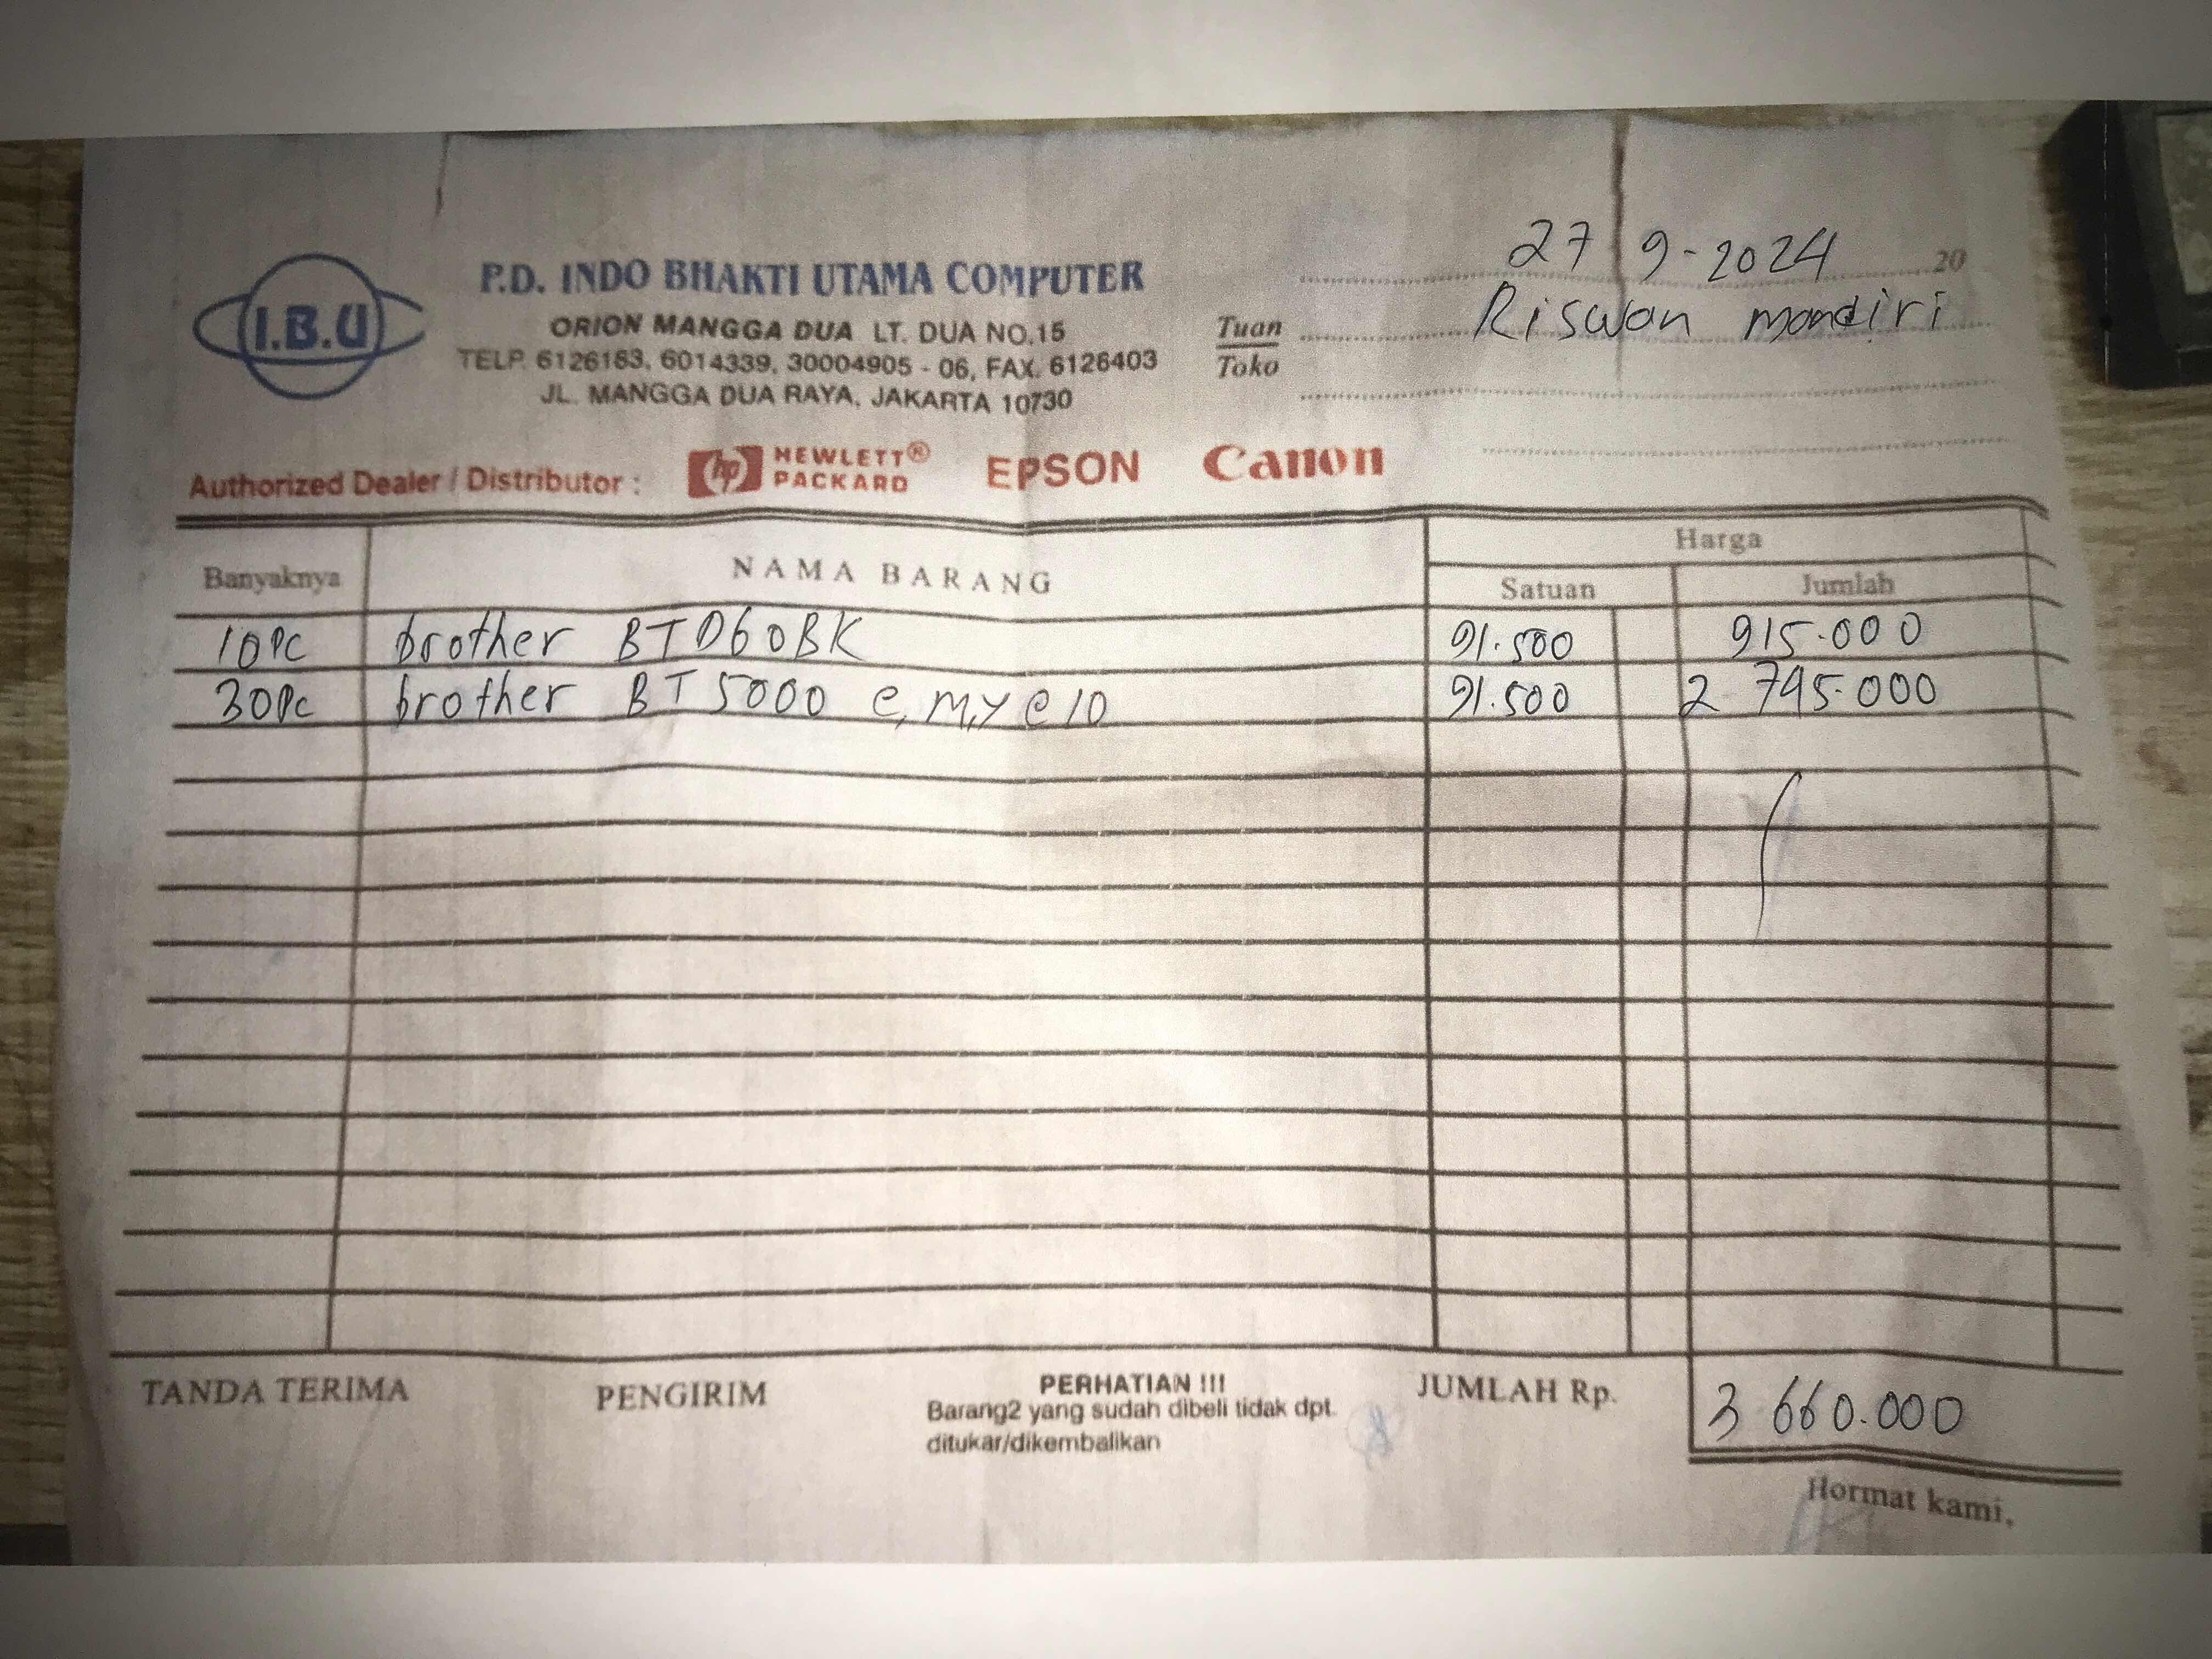 27/9-2024 20
I.B.U
P.D. INDO BHAKTI UTAMA COMPUTER
ORION MANGGA DUA LT. DUA NO.15
TELP. 6126183, 6014339, 30004905 - 06, FAX. 6126403
JL. MANGGA DUA RAYA, JAKARTA 10730
Tuan Riswan mandiri
Toko
Authorized Dealer / Distributor : hp HEWLETT® PACKARD EPSON Canon
Banyaknya NAMA BARANG Harga
Satuan Jumlah
10Pc brother BTD60BK 91.500 915.000
30Pc brother BT5000 c,m,y @10 91.500 2 745.000
TANDA TERIMA PENGIRIM PERHATIAN !!! JUMLAH Rp. 3 660.000
Barang2 yang sudah dibeli tidak dpt.
ditukar/dikembalikan
Hormat kami,